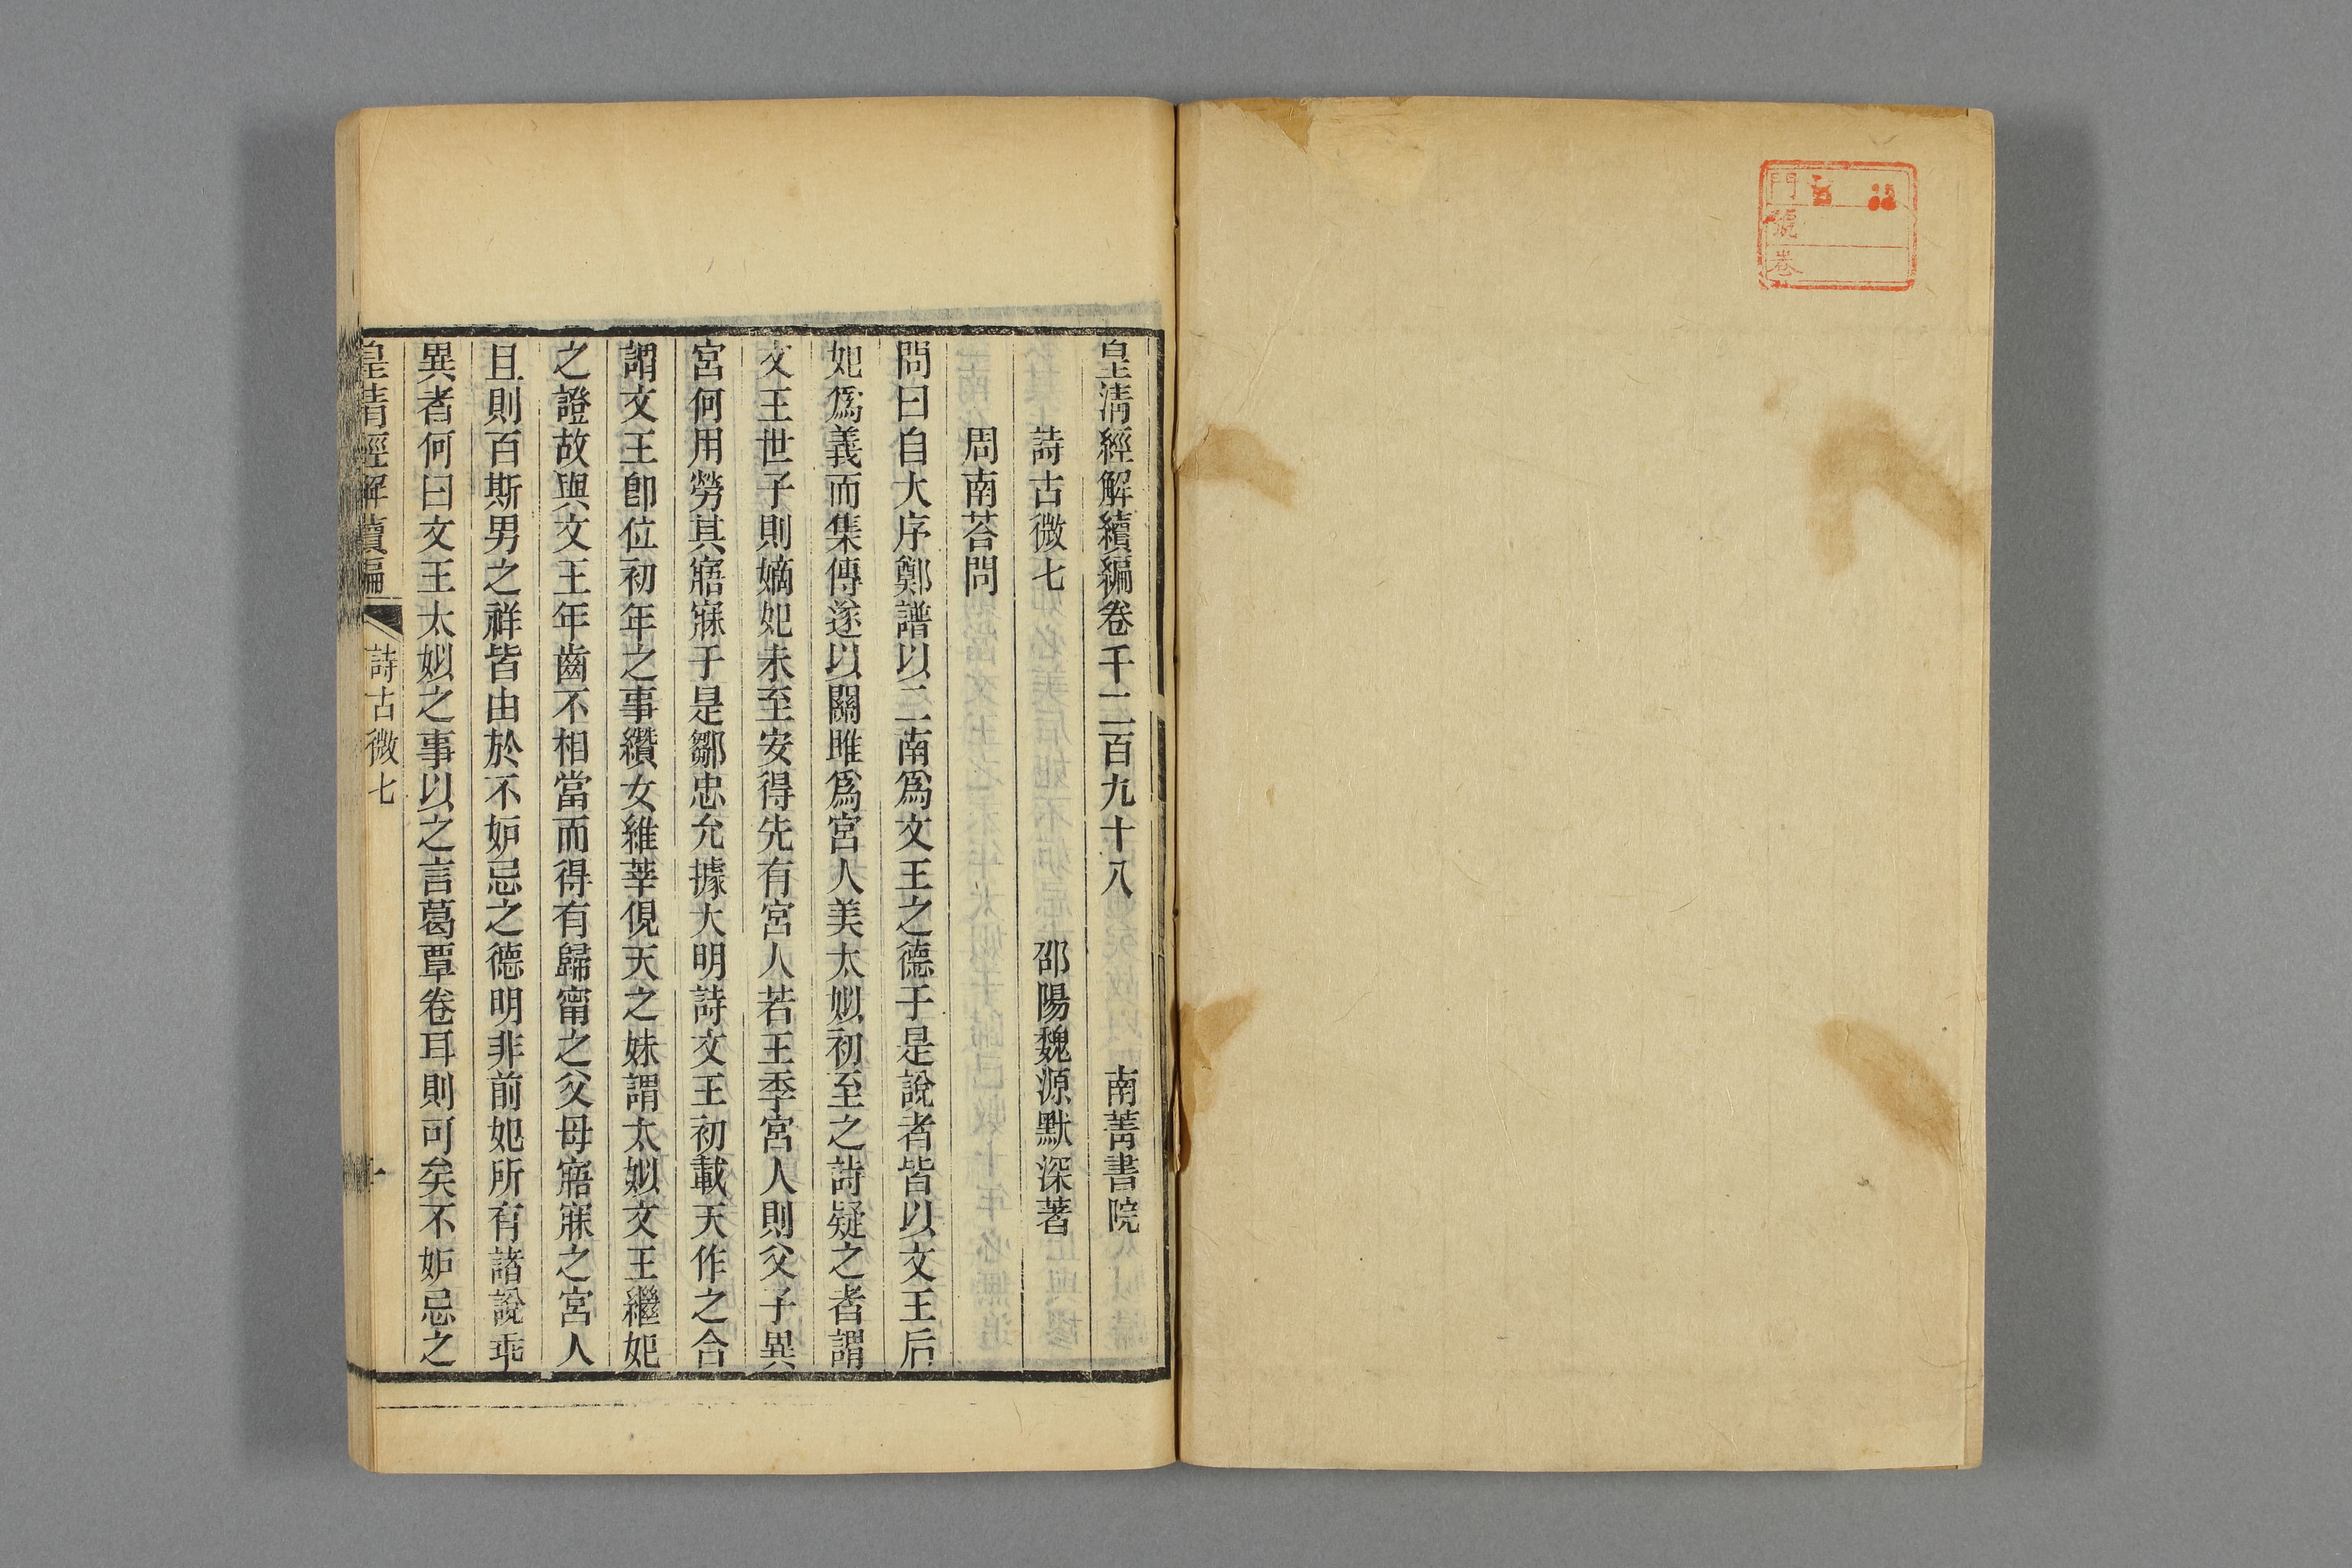 門
號
卷
皇淸經解續編卷千二百九十八　南菁書院
詩古微七　邵陽魏源默深著
周南荅問
問曰自大序鄭譜以二南爲文王之德于是說者皆以文王后
妃爲義而集傳遂以關雎爲宮人美太姒初至之詩疑之者謂
文王世子則嫡妃未至安得先有宮人若王季宮人則父子異
宮何用勞其寤寐于是鄒忠允據大明詩文王初載天作之合
謂文王卽位初年之事纘女維莘俔天之妹謂太姒文王繼妃
之證故與文王年齒不相當而得有歸甯之父母寤寐之宮人
且則百斯男之祥皆由於不妒忌之德明非前妃所有諸說乖
異者何曰文王太姒之事以之言葛覃卷耳則可矣不妒忌之
皇清經解續編　詩古微七　一